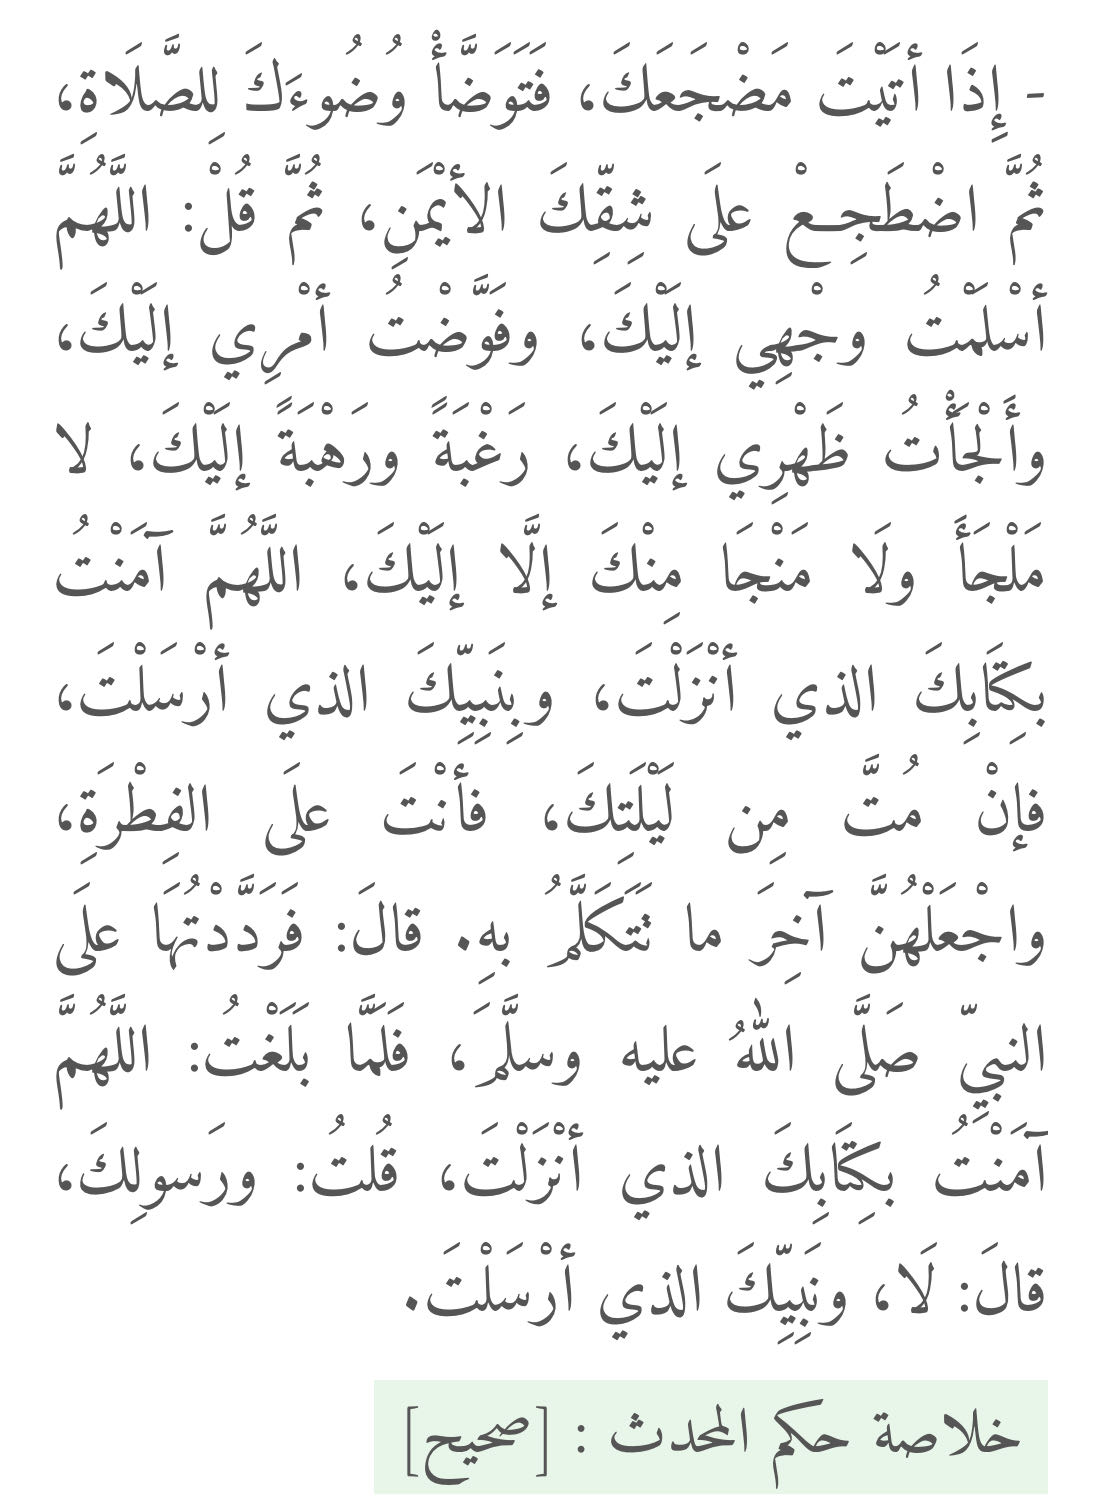 - إِذَا أتَيْتَ مَضْجَعَكَ، فَتَوَضَّأْ وُضُوءَكَ لِلصَّلَاةِ،
ثُمَّ اضْطَجِعْ علَى شِقِّكَ الأيْمَنِ، ثُمَّ قُلْ: اللَّهُمَّ
أسْلَمْتُ وجْهِي إلَيْكَ، وفَوَّضْتُ أمْرِي إلَيْكَ،
وأَلْجَأْتُ ظَهْرِي إلَيْكَ، رَغْبَةً ورَهْبَةً إلَيْكَ، لا
مَلْجَأَ ولَا مَنْجَا مِنْكَ إلَّا إلَيْكَ، اللَّهُمَّ آمَنْتُ
بكِتَابِكَ الذي أنْزَلْتَ، وبِنَبِيِّكَ الذي أرْسَلْتَ،
فإنْ مُتَّ مِن لَيْلَتِكَ، فأنْتَ علَى الفِطْرَةِ،
واجْعَلْهُنَّ آخِرَ ما تَتَكَلَّمُ بهِ. قالَ: فَرَدَّدْتُهَا علَى
النبيِّ صَلَّى اللهُ عليه وسلَّمَ، فَلَمَّا بَلَغْتُ: اللَّهُمَّ
آمَنْتُ بكِتَابِكَ الذي أنْزَلْتَ، قُلتُ: ورَسولِكَ،
قالَ: لَا، ونَبِيِّكَ الذي أرْسَلْتَ.
خلاصة حكم المحدث : [صحيح]